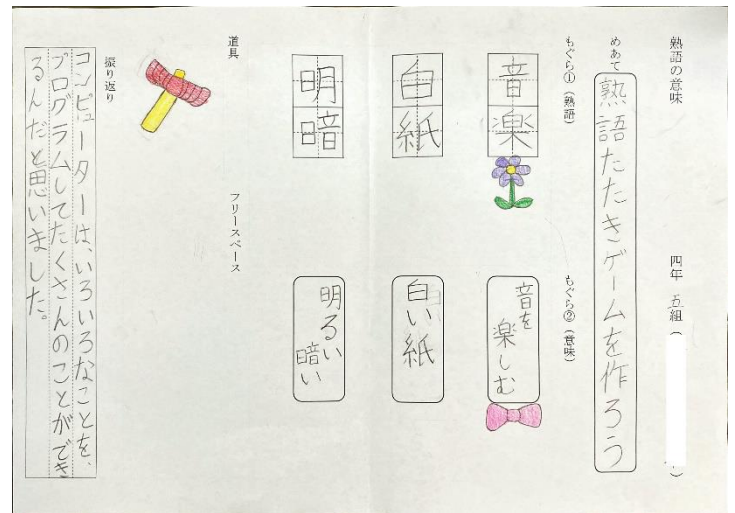 熟語の意味
四年 五組( )
めあて
熟語たたきゲームを作ろう
もぐら①(熟語)
もぐら②(意味)
音楽
音を
楽しむ
白紙
白い紙
明暗
明るい
暗い
道具
フリースペース
振り返り
コンピューターは、いろいろなことを、
プログラムしてたくさんのことができ
るんだと思いました。